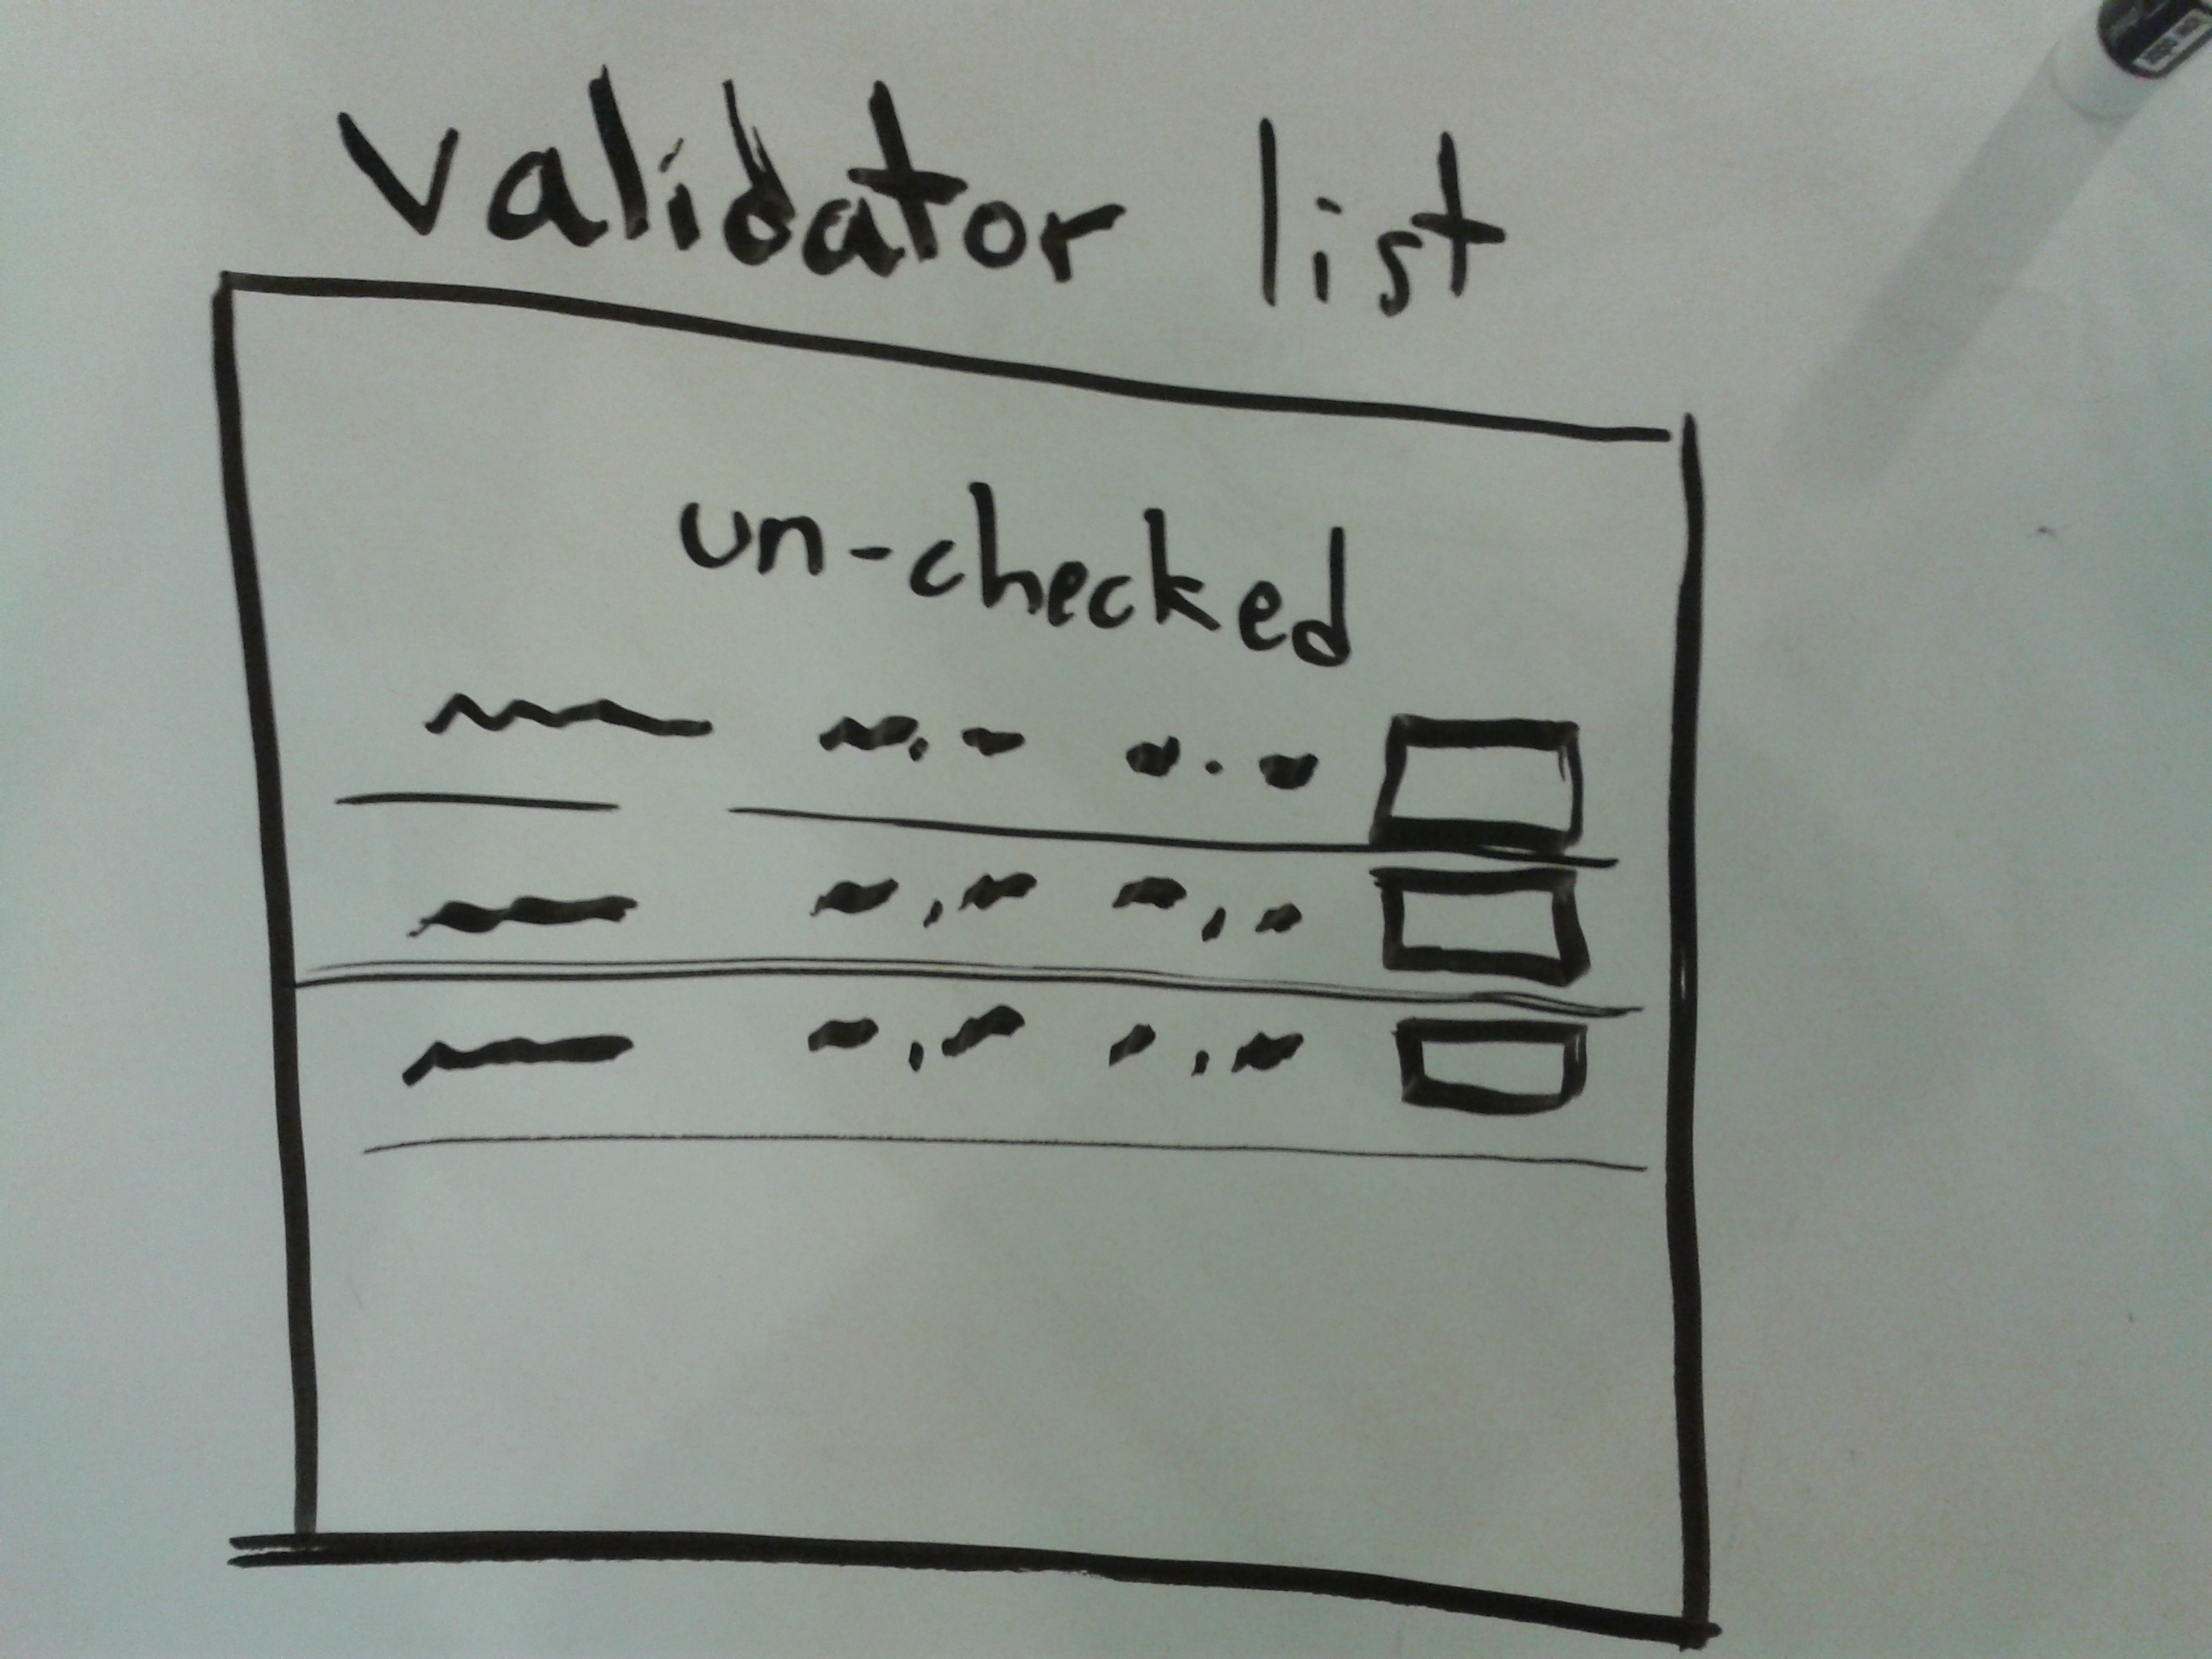 Validator list
un-checked